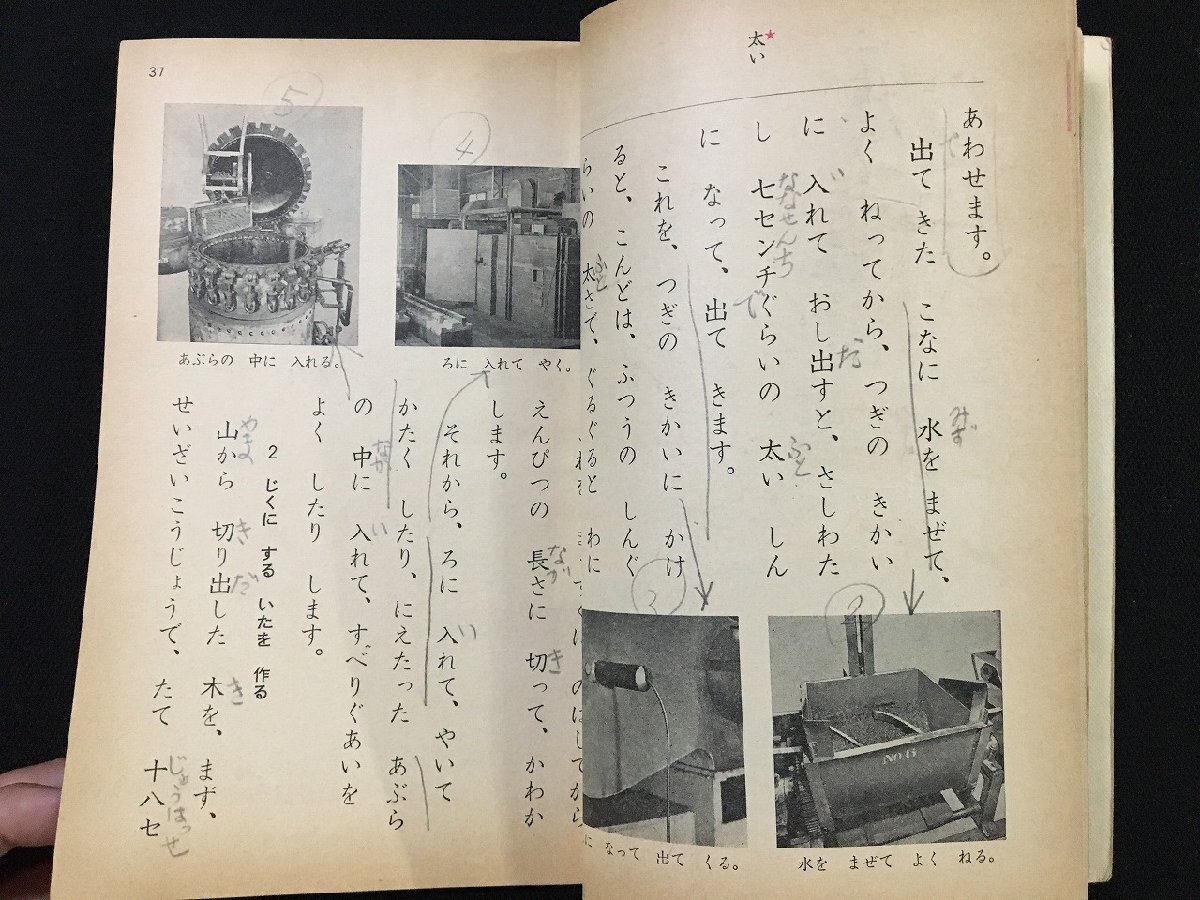 太い
あわせます。
出てきた こなに 水を まぜて、
よく ねってから、つぎの きかい
に 入れて おし出すと、さしわた
し 七センチぐらいの 太い しん
に なって、出て きます。
これを、つぎの きかいに かけ
ると、こんどは、ふつうの しんぐ
らいの 太さで、ぐるぐると わに
みず
だ
ななせんち
で
ふと
ふと
②
③
水を まぜて よく ねる。
に なって 出て くる。
No.6
37
⑤
④
あぶらの 中に 入れる。
ろに 入れて やく。
のばしてから
えんぴつの 長さに 切って、かわか
します。
それから、ろに 入れて、やいて
かたく したり、にえたった あぶら
の 中に 入れて、すべりぐあいを
よく したり します。
2 じくに する いたを 作る
山から 切り出した 木を、まず、
せいざいこうじょうで、たて 十八セ
なが
き
い
なか
い
やま
き
だ
き
じゅうはっせ